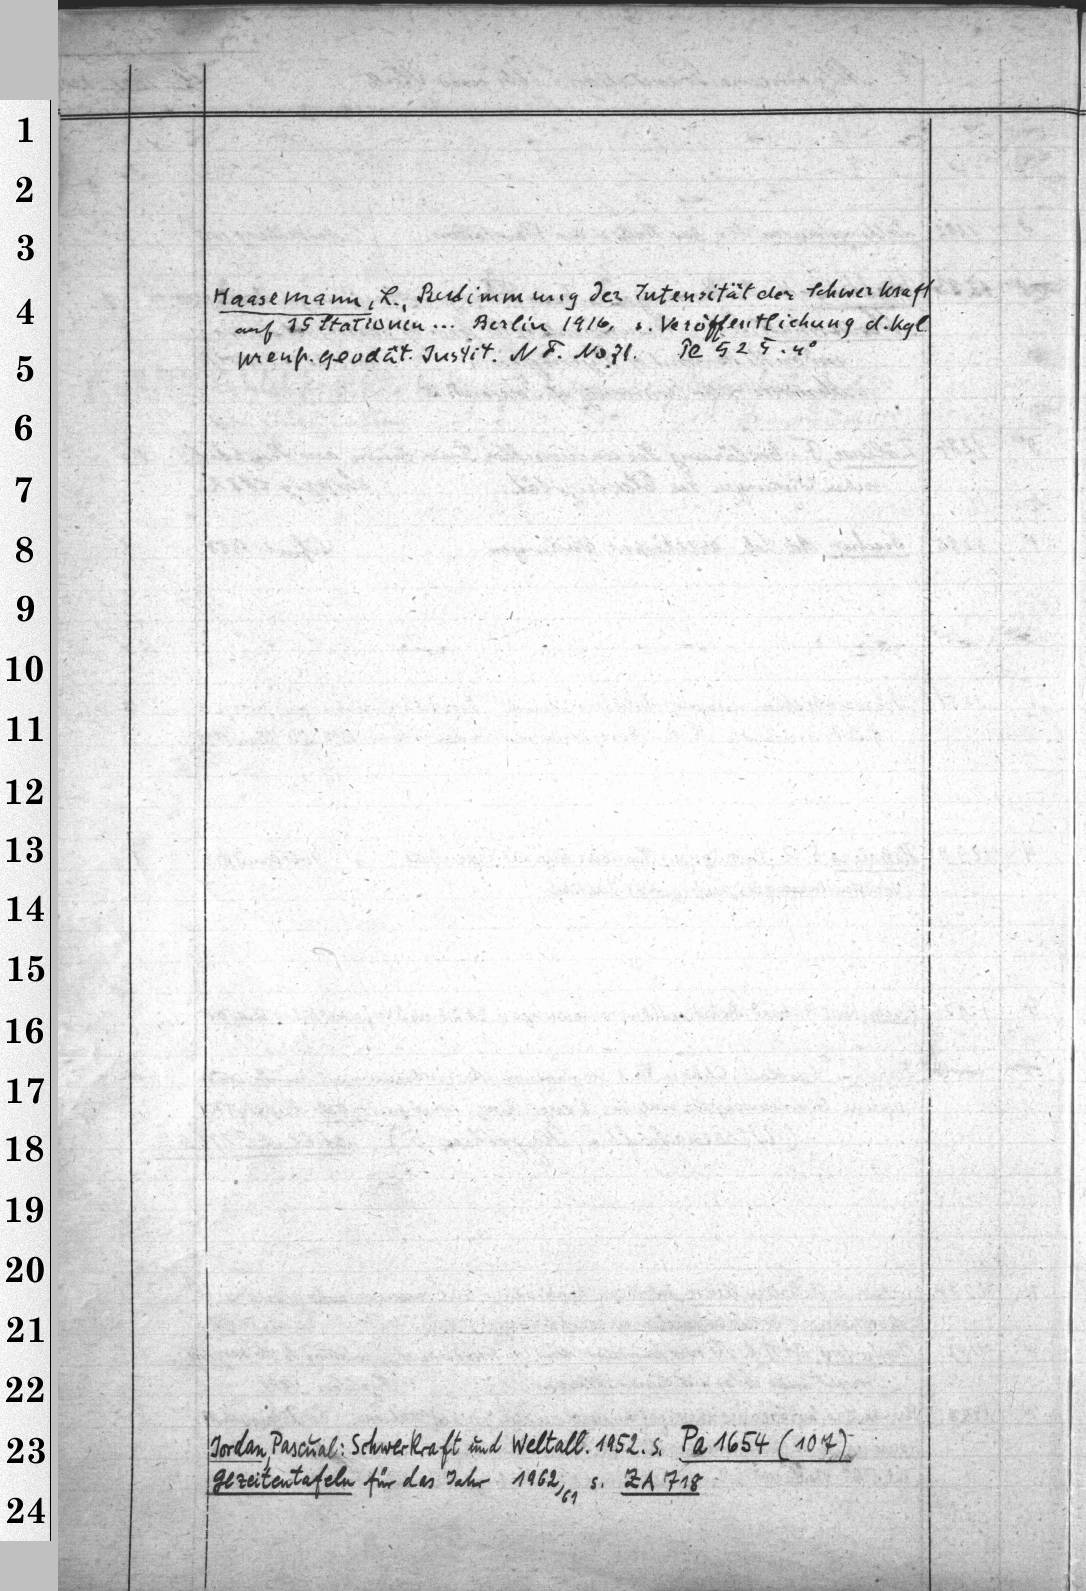 1
2
3
4
5
6
7
8
9
10
11
12
13
14
15
16
17
18
19
20
21
22
23
24
Haasemann, L., Bestimmung der Intensität der Schwerkraft
auf 15 Stationen... Berlin 1916, s. Veröffentlichung d. Kgl
preuß. geodät. Instit. N F. No 71. Pe 525. 4°
Jordan, Pascual: Schwerkraft und Weltall. 1952. s. Pa 1654 (107)
Gezeitentafeln für das Jahr 1962/61 s. ZA 718